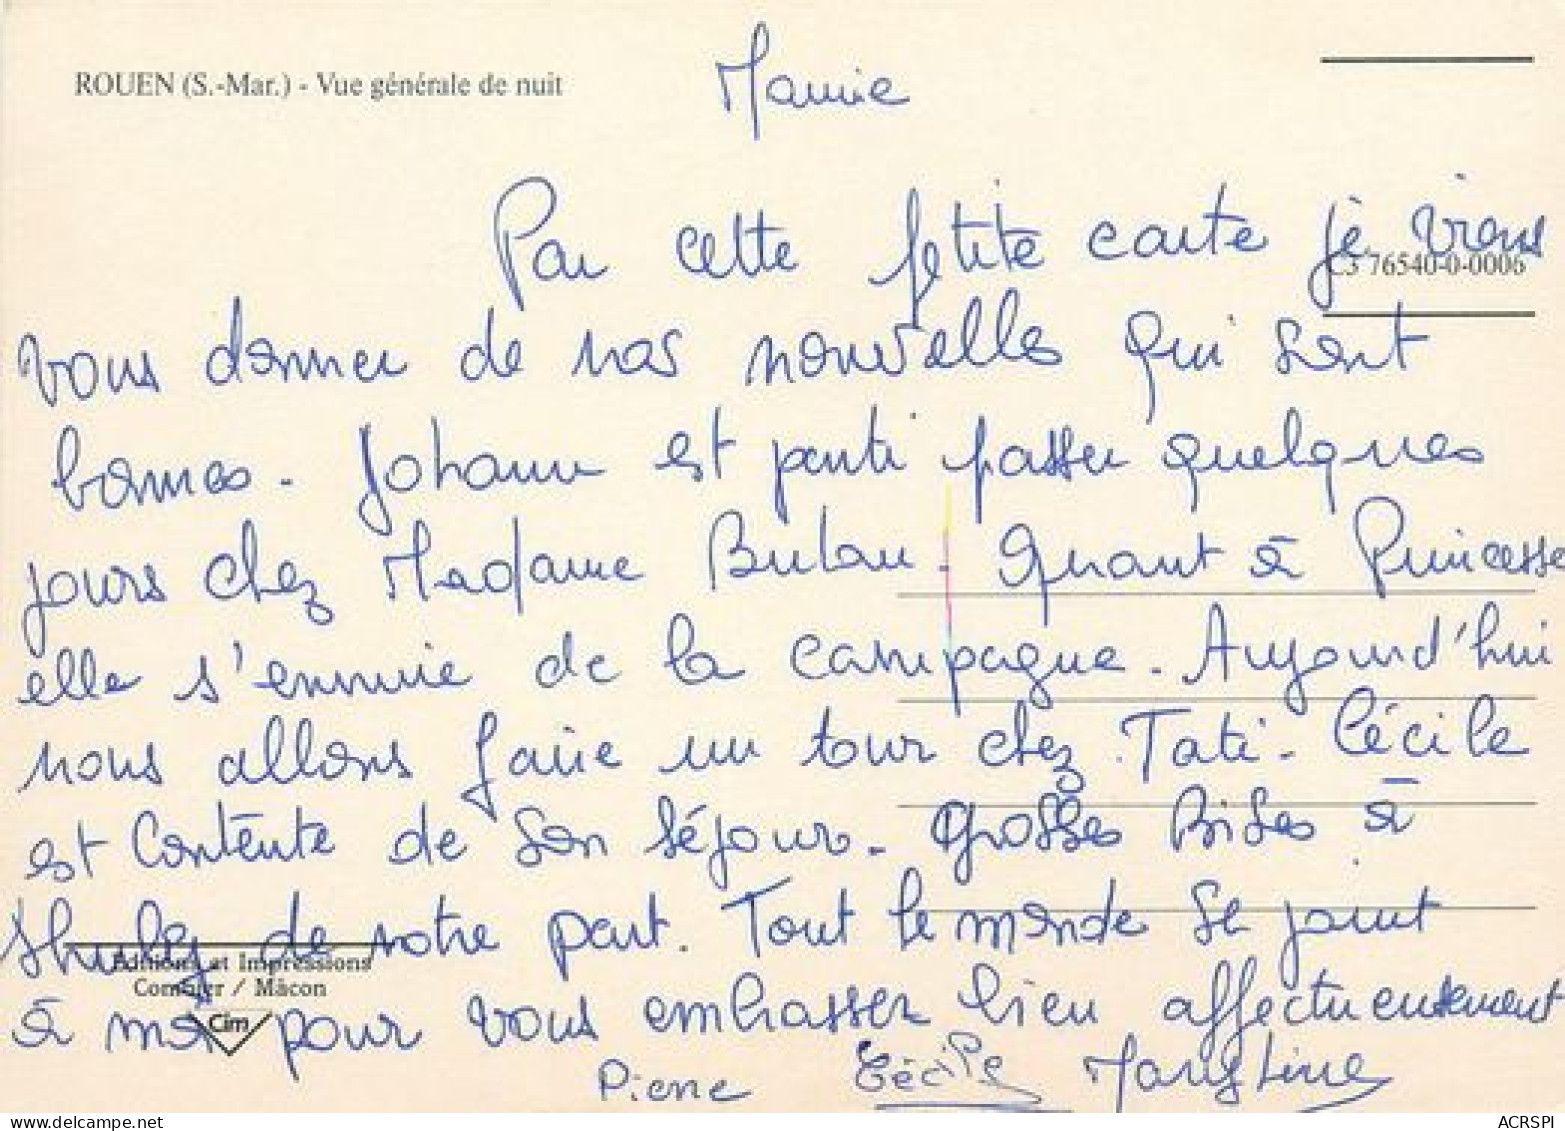 ROUEN (S.-Mar.) - Vue générale de nuit
Mamie
Par cette petite carte je viens
C3 76540-0-0006
vous donner de nos nouvelles qui sont
bonnes. Johann est parti passer quelques
jours chez Madame Bulau. Quant à Princesse
elle s'ennuie de la campagne. Aujourd'hui
nous allons faire un tour chez Tati. Cécile
est contente de son séjour. Grosses Bises à
de notre part. Tout le monde se joint
Editions et Impressions
Combier / Mâcon
Cim
à moi pour vous embrasser bien affectueusement
Pierre Cécile
ACRSPI